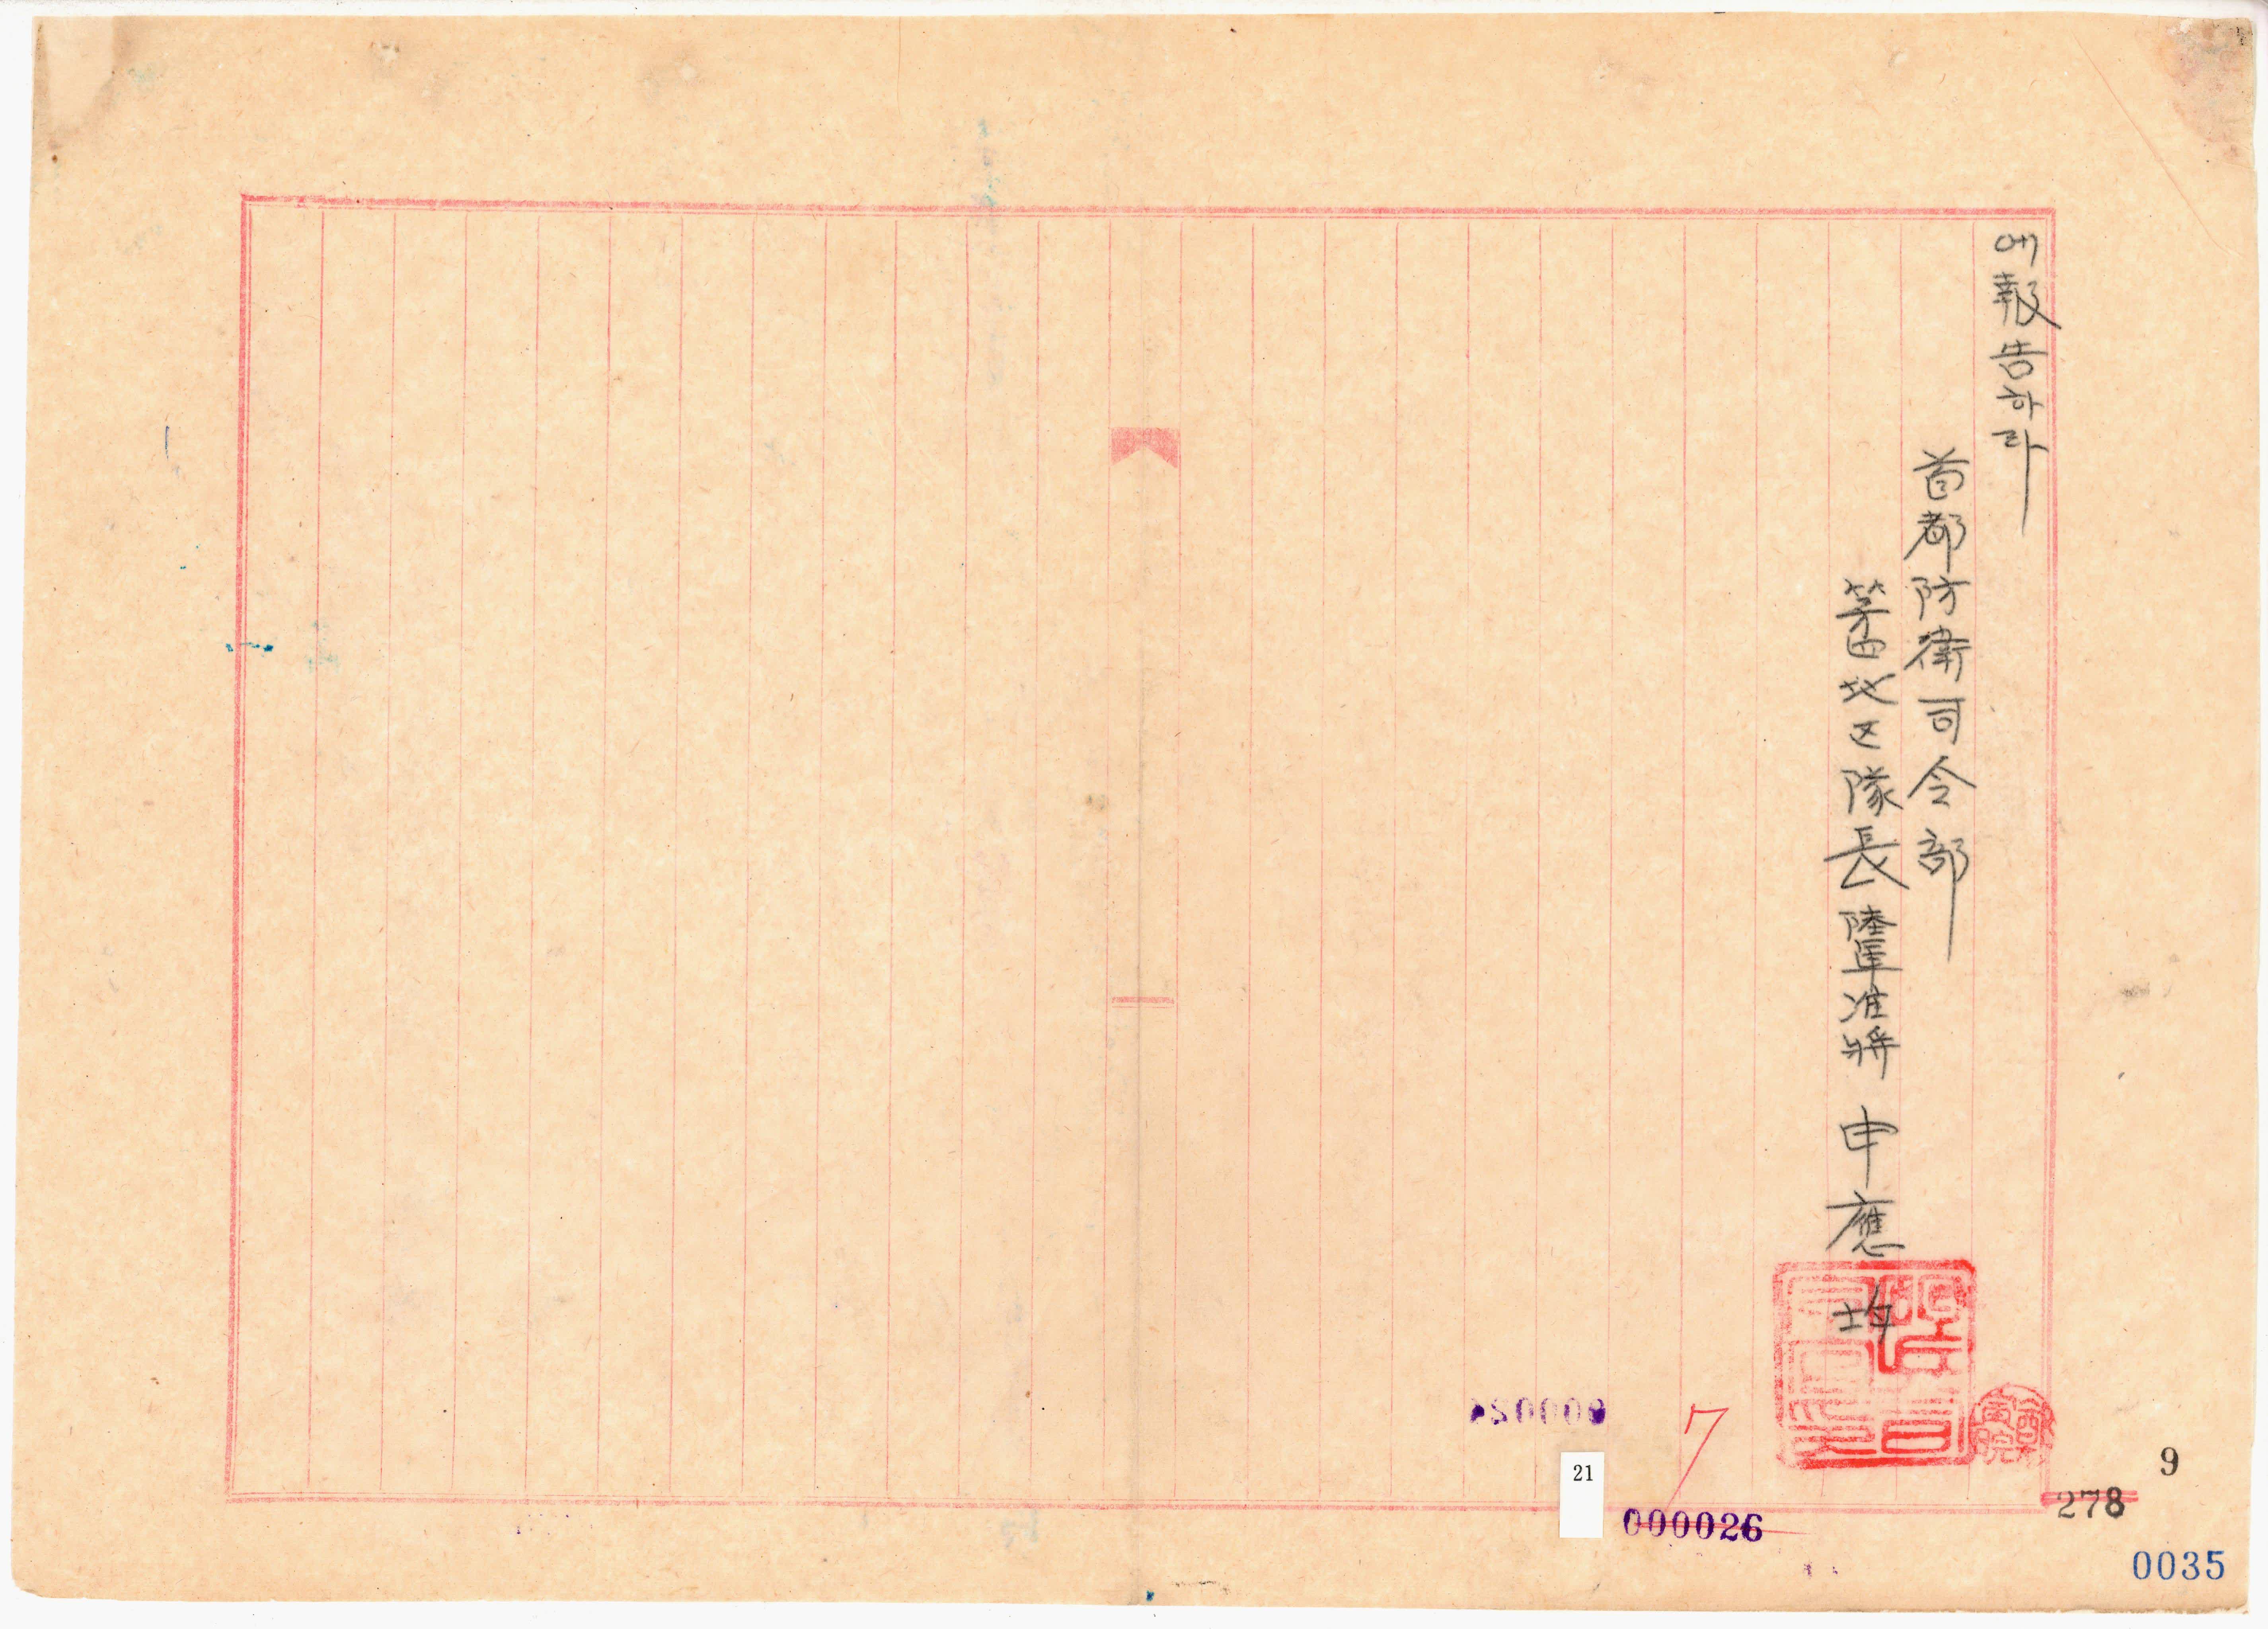 에報告하라
首都防衛司令部
第四地区隊長 陸軍准將 申應均
7
000026
21
9
278
0035